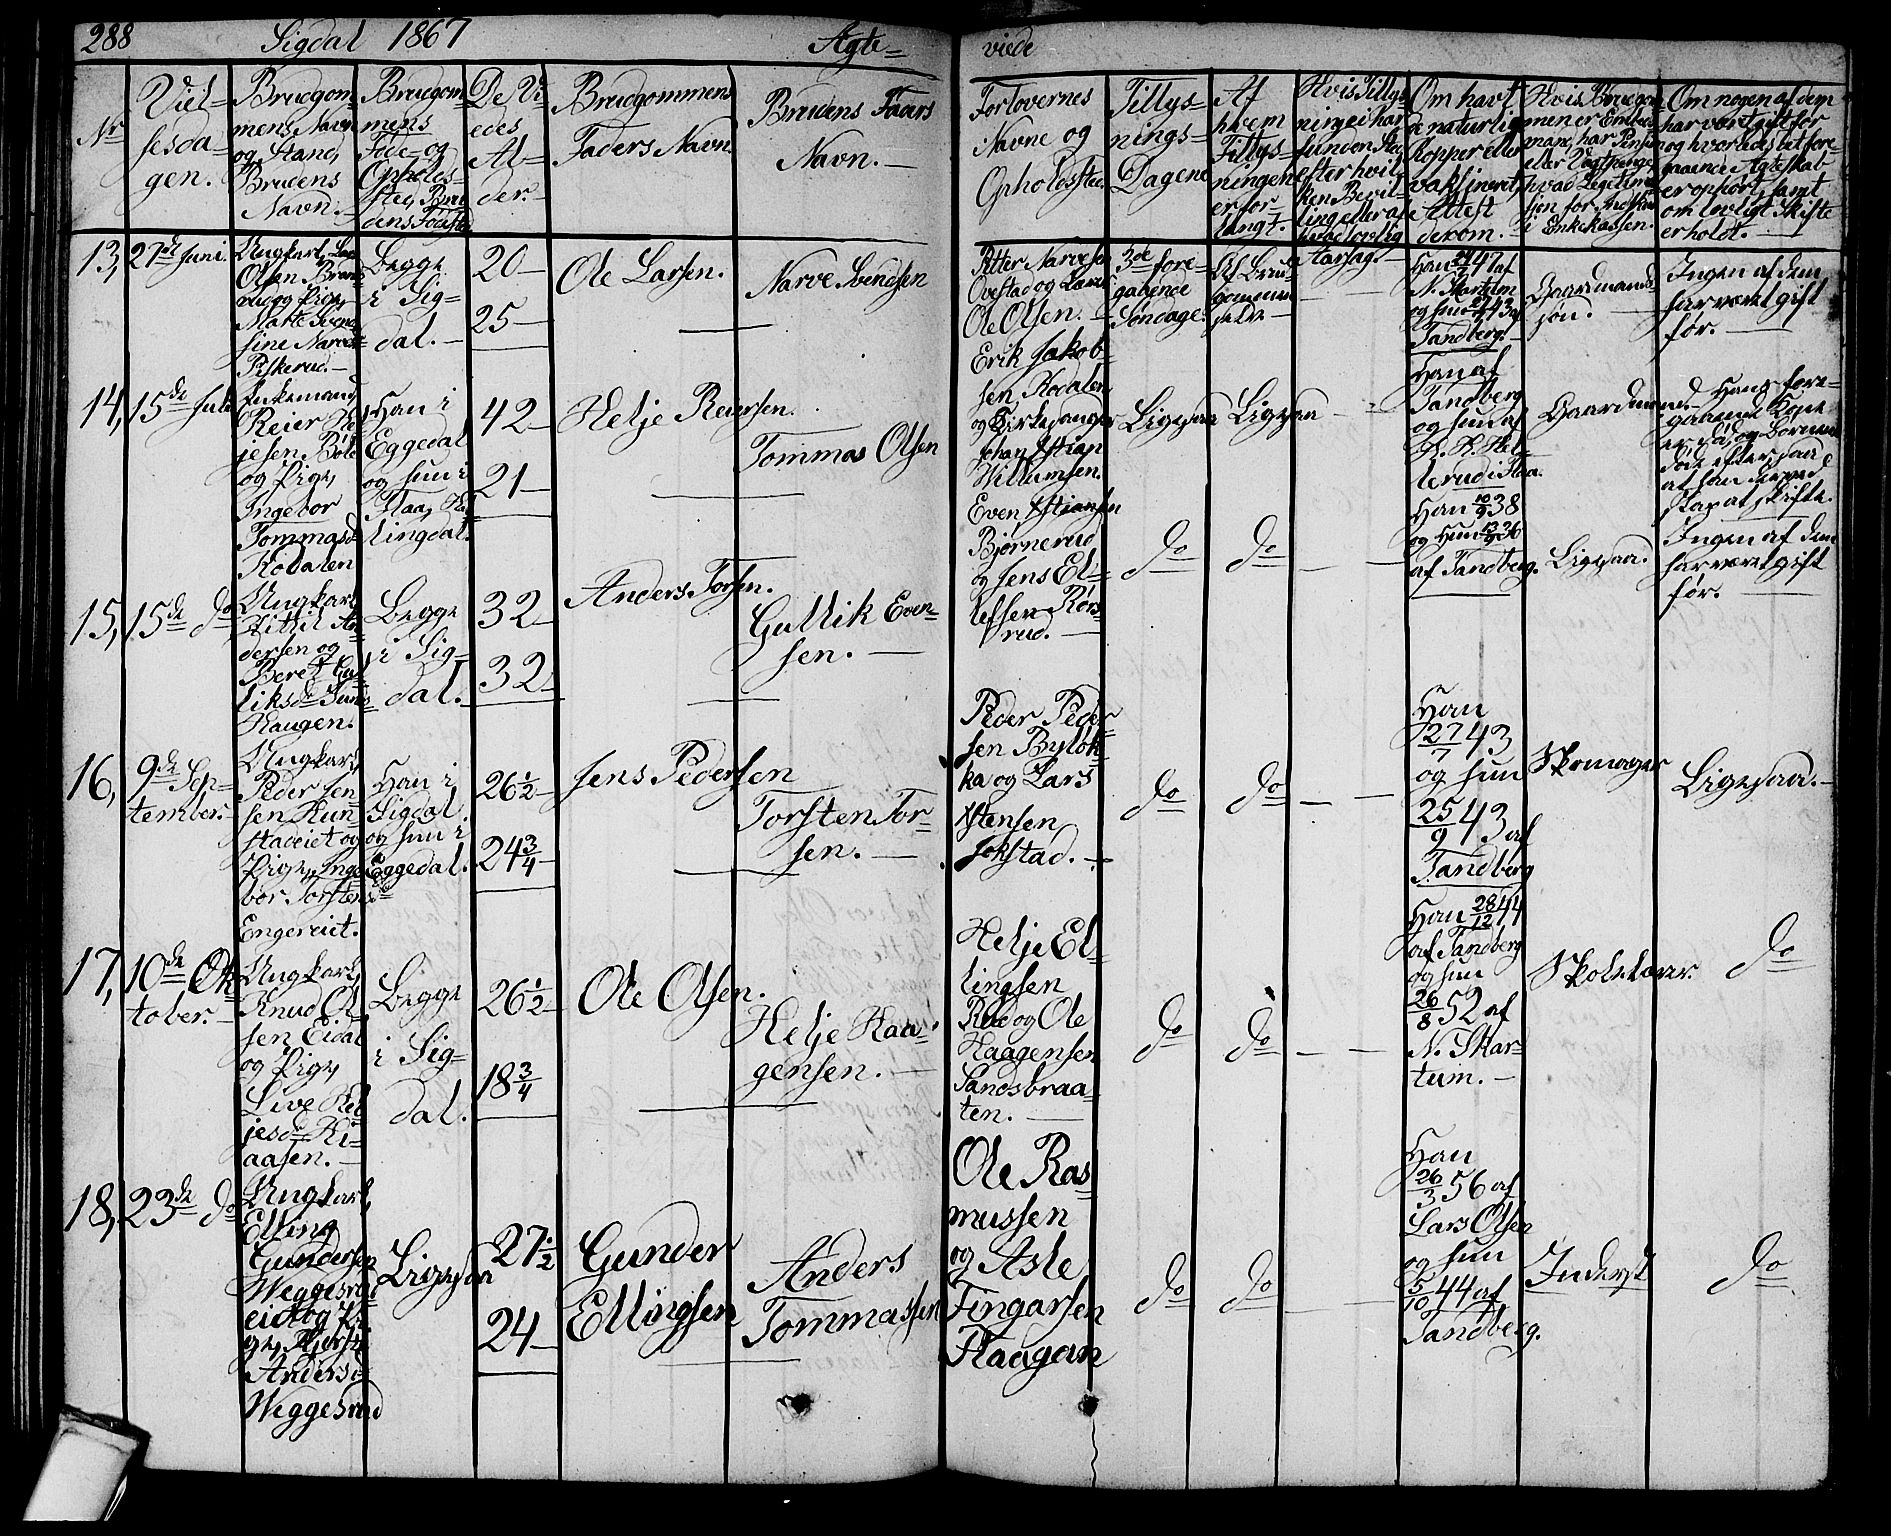 288 Sigdal 1867 Ægte=
viede
Nr
Viel-
sesda-
gen.
Brudgom-
mens Navn
og Stand,
Brudens
Navn.
Brudgom
mens
Føde- og
Opholds-
sted, Bru
dens Fødested
De Vi
edes
Al-
der.
Brudgommens
Faders Navn.
Brudens Faars
Navn. —
Forlovernes
Navne og
Opholdsted
Tillys-
nings-
Dagene
Af
hvem
Tillys-
ningen
er for-
langt.
Hvis Tillys-
ning ei har
funden Sted
efter hvil-
ken Bevil-
ling eller af
hvad lovlig
Aarsag.
Om havt
de naturlige
kopper eller
vaksineret,
Attest
derom.
Hvis Brudgom
men er Embeds
mand, har Pension
eller Vagtpenge,
hvad Legetima
sjon for Indskud
i Enkekassen.
Om nogen af dem
har været gift før
og hvorledes det fore-
gaaende Ægteskab
er ophørt, samt
om lovligt Skifte
er holdt.
13, 21de Juni.
Ungkarl, Lars
Olsen
og Pige,
Narves=
Piskerud.
Begge
i Sig=
dal. —
20—
25—
Ole Larsen.
Narve Svendsen
Petter Narvesen
Ovestad og
Ole Olsen.
3de fore=
gaaende
Søndage.
Af Brud-
gommen
selv —
Han 47 af
N. Skartum
og hun 43 af
Tandberg.
Gaardmands
søn. —
Ingen af dem
har været gift
før. —
14, 15de Juli
Enkemand
Reier He
jesen
og Pige,
Ingebor
Tommasd
Kodalen
Han i
Eggedal
og hun i
Flaa, Ha
lingdal.
42—
21—
Helje Reiersen.
Tommas Olsen
Erik Jakob=
sen, Kodalen
og Kirkesanger
Johan
Willumsen.
Ligesaa Ligesaa
Han af
Tandberg
og hun af
lerud i Flaa.
Gaardmand.
Hans fore=
gaaende Kone
er død, og Børnene
døde efter, saa
at han Intet
skar at skifte.
15, 15de do
Ungkarl,
Kittil An
dersen og
Beret Gul
liksd.
Haugen.
Begge
i Sig=
dal.
32—
32—
Anders Torsen.
Gullik Even=
sen. —
Even
Bjørnerud
og Jens El=
lefsen Rørs
rud. —
do do
Han 10/9 38
og Hun 36
af Tandberg.
Ligesaa.
Ingen af dem
har været gift
før. —
16, 9de Sep=
tember. —
Ungkarl,
Peder Jen=
sen Kun=
stadeiet og
Pige, Inge
bor Torstensd
Engereiet.
Han i
Sigdal
og hun i
Eggedal.
26½—
24¾—
Jens Pedersen
Torsten Tor=
sen. —
Peder Peder
sen Byløk
ka og Lars
Jokstad. —
do do
Han
27/7 43
og hun
25/9 43 af
Tandberg
Skomager
Ligesaa. —
17, 10de Ok=
tober. —
Ungkarl,
Knud Ol
sen Eidal
og Pige,
Live Hel
jesd
aasen. —
Begge
i Sig=
dal.
26½—
18¾
Ole Olsen.
Helje Haa=
gensen. —
Helje El=
lingsen
Rud og Ole
Haagensen
Sandsbraa=
ten. —
do do
Han 28/12 44
af Tandberg
og hun
26/8 52 af
N. Skar=
tum. —
Skolelærer.
do
18, 23de do
Ungkarl,
Elling
Gundersen
Weggesrud
eiet og Pi=
ge,
Andersd
Weggesrud
Ligesaa
27½
24—
Gunder
Ellingsen
Anders
Tommassen
Ole Ras=
mussen
og Asle
Fingarsen
Flaagan
do do
Han
26/3 56 af
Lars Olsen
og hun
5/10 44 af
Tandberg.
Inderst
do